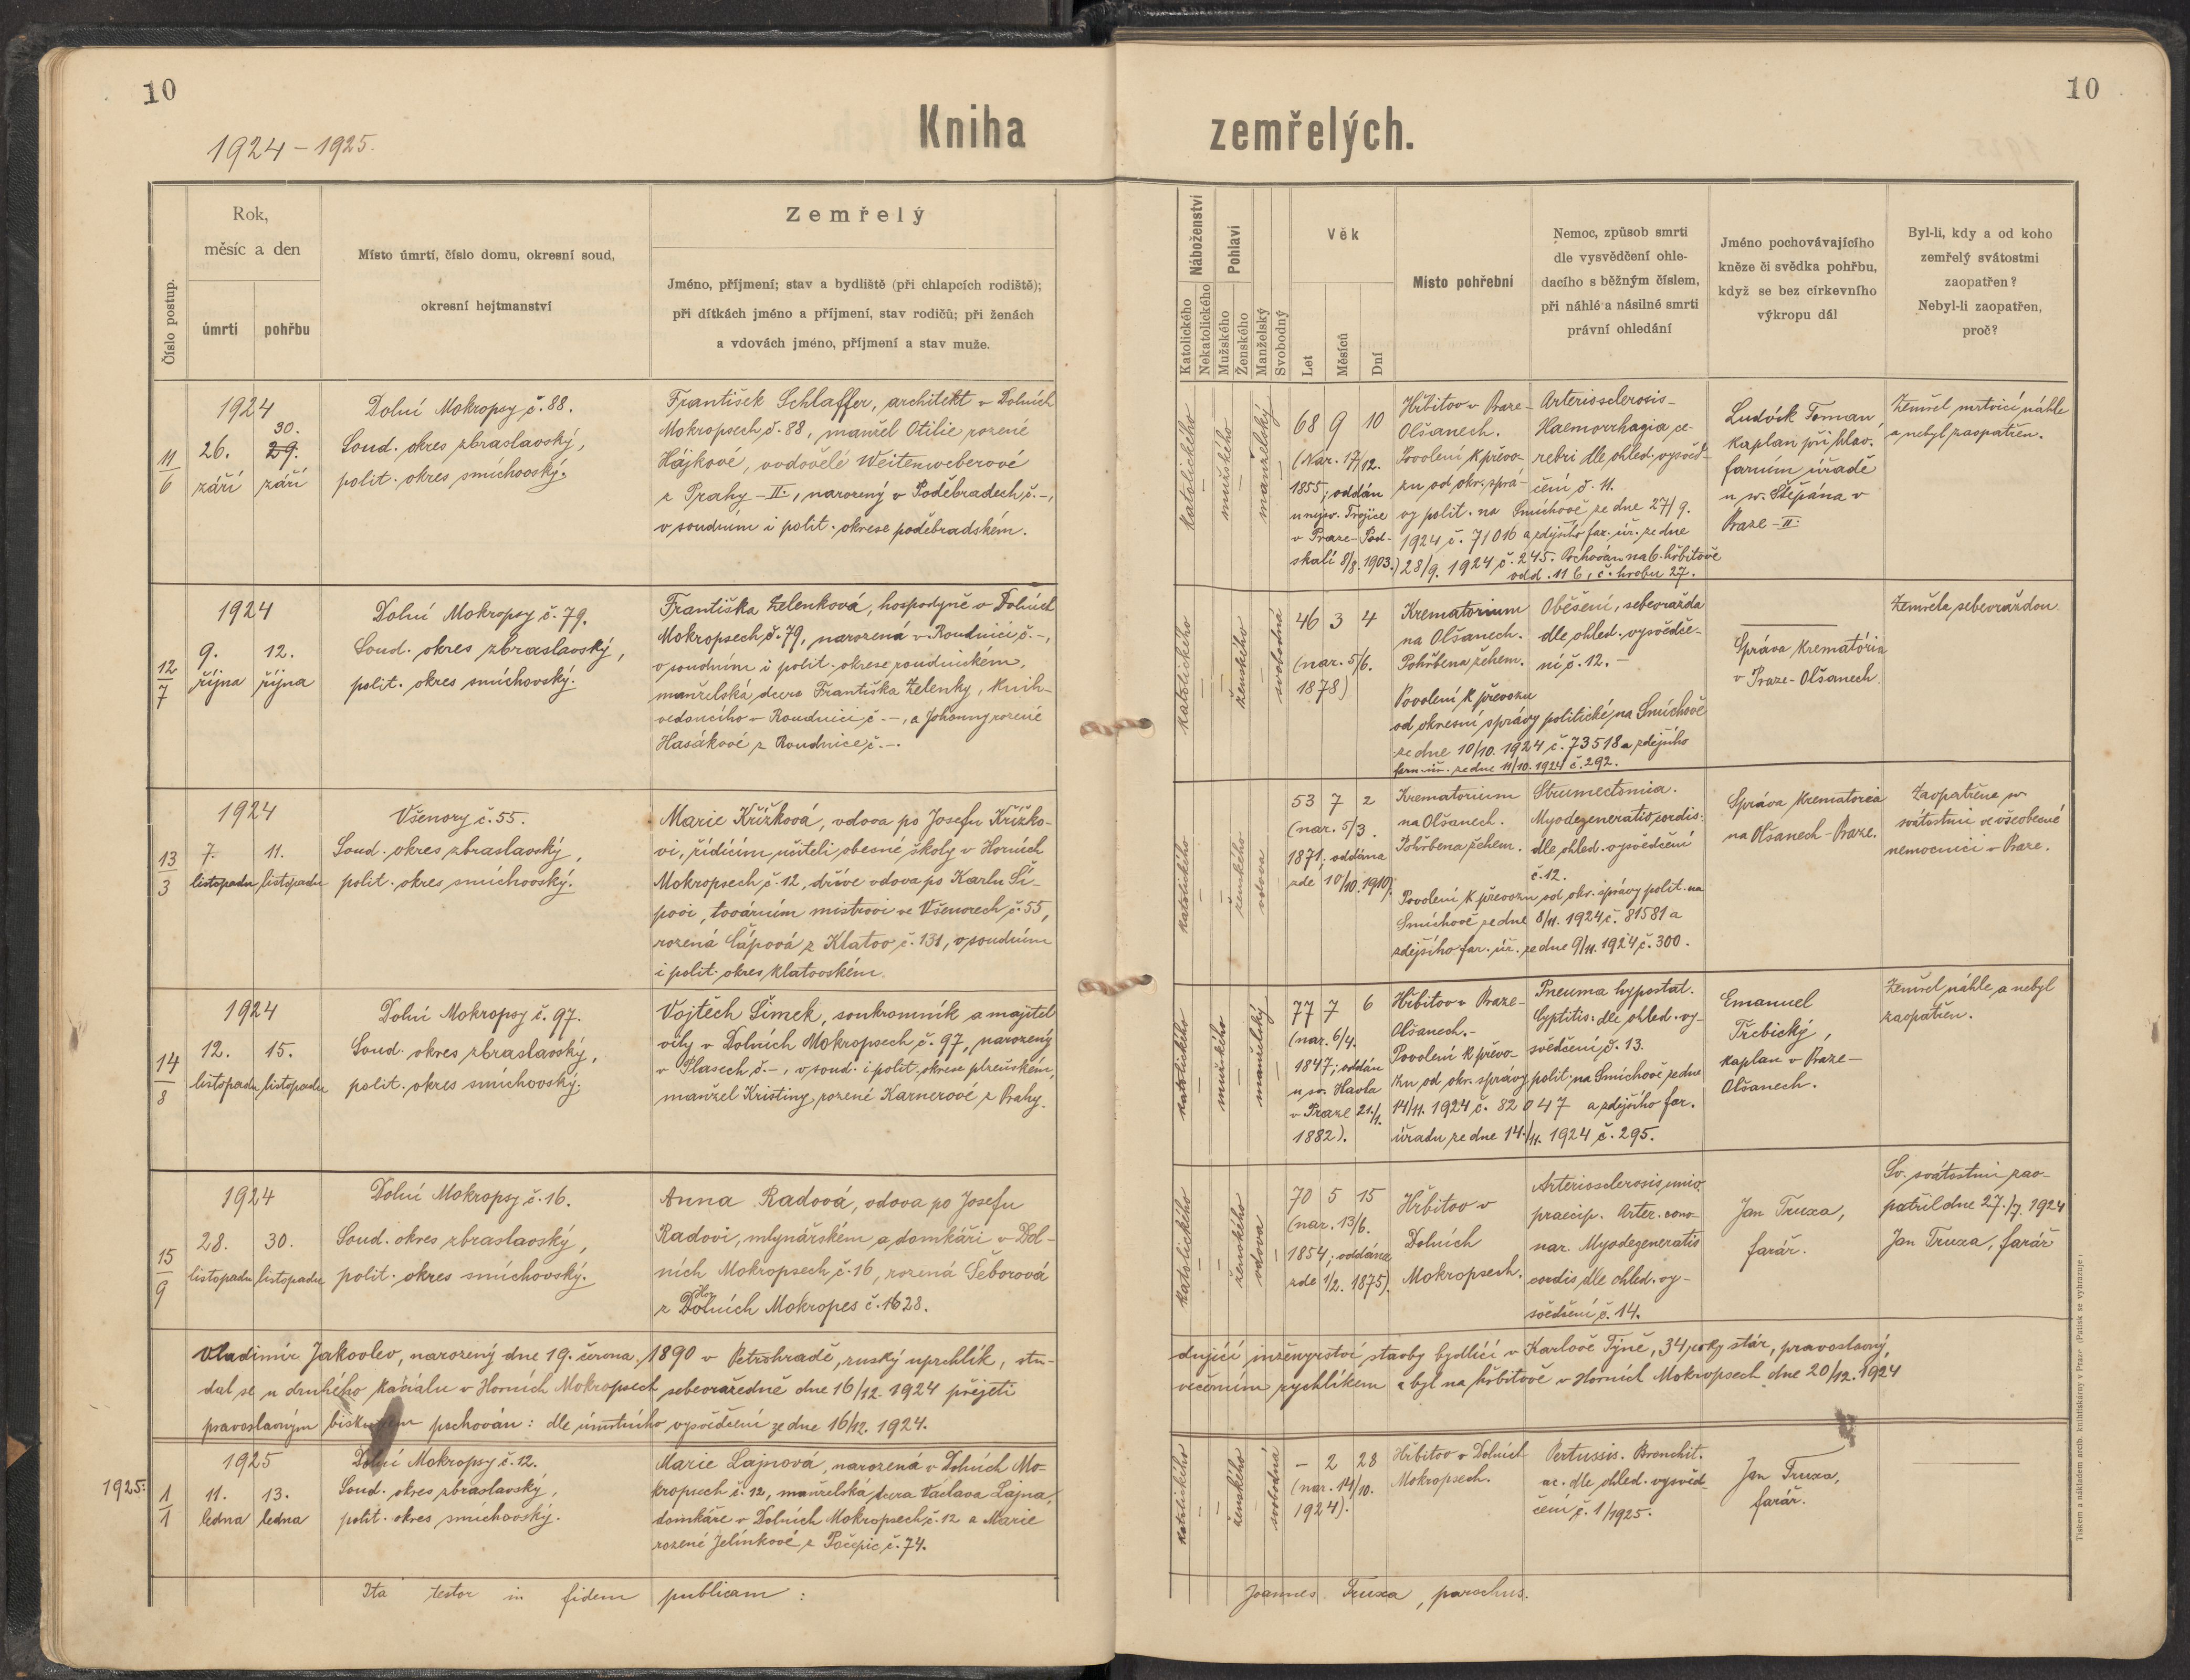 10
1924 – 1925.
Kniha
Číslo postup.
Rok,
měsíc a den
úmrtí
pohřbu
Místo úmrtí, číslo domu, okresní soud,
okresní hejtmanství
Zemřelý
Jméno, příjmení; stav a bydliště (při chlapcích rodiště);
při dítkách jméno a příjmení, stav rodičů; při ženách
a vdovách jméno, příjmení a stav muže.
11
6
1924
30.
26. 29.
září září
Dolní Mokropsy č. 88.
Soud. okres zbraslavský,
polit. okres smíchovský.
František Schlaffer, architekt v Dolních
Mokropsech č. 88, manžel Otilie rozené
Hájkové, vodovělé Weitenweberové
z Prahy – II., narozený v Poděbradech č. –,
v soudním i polit. okrese poděbradském.
12
7
1924
9. 12.
října října
Dolní Mokropsy č. 79.
Soud. okres zbraslavský,
polit. okres smíchovský.
Františka Zelenková, hospodyně v Dolních
Mokropsech č. 79, narozená v Roudnici č. –,
v soudním i polit. okrese roudnickém,
manželská dcera Františka Zelenky, knih-
vedoucího v Roudnici č. –, a Johanny rozené
Hasákové z Roudnice č. –.
13
3
1924
7. 11.
listopadu listopadu
Všenory č. 55.
Soud. okres zbraslavský,
polit. okres smíchovský.
Marie Křížková, vdova po Josefu Křížko-
vi, řídícím učiteli obecné školy v Horních
Mokropsech č. 12, dříve vdova po Karlu Ší-
povi, továrním mistrovi ve Všenorech č. 55,
rozená Čápová z Klatov č. 131, v soudním
i polit. okres klatovském.
14
8
1924
12. 15.
listopadu listopadu
Dolní Mokropsy č. 97.
Soud. okres zbraslavský,
polit. okres smíchovský.
Vojtěch Šimek, soukromník a majitel
vily v Dolních Mokropsech č. 97, narozený
v Plasech č. –, v soud. i polit. okrese plzeňském,
manžel Kristiny rozené Karnerové z Prahy.
15
9
1924
28. 30.
listopadu listopadu
Dolní Mokropsy č. 16.
Soud. okres zbraslavský,
polit. okres smíchovský.
Anna Radová, vdova po Josefu
Radovi, mlynářském a domkáři v Dol-
ních Mokropsech č. 16, rozená Šeborová
Hor
z Dolních Mokropes č. 1628.
Vladimír Jakovlev, narozený dne 19. června 1890 v Petrohradě, ruský uprchlík, stu-
dal se u druhého kaválu v Horních Mokropsech sebevražedně dne 16/12. 1924 přejeti
pravoslavným biskupem pochován: dle úmrtního vysvědčení ze dne 16/12. 1924.
1925:
1
1
1925
11. 13.
ledna ledna
Dolní Mokropsy č. 12.
Soud. okres zbraslavský,
polit. okres smíchovský.
Marie Lajnová, narozená v Dolních Mo-
kropsech č. 12, manželská dcera Václava Lajna,
domkáře v Dolních Mokropsech č. 12 a Marie
rozené Jelínkové z Počepic č. 74.
Ita testor in fidem publicam :
10
zemřelých.
Náboženství
Katolického
Nekatolického
Pohlaví
Mužského
Ženského
Manželský
Svobodný
Věk
Let
Měsíců
Dní
Místo pohřební
Nemoc, způsob smrti
dle vysvědčení ohle-
dacího s běžným číslem,
při náhlé a násilné smrti
právní ohledání
Jméno pochovávajícího
kněze či svědka pohřbu,
když se bez církevního
výkropu dál
Byl-li, kdy a od koho
zemřelý svátostmi
zaopatřen?
Nebyl-li zaopatřen,
proč?
katolického
–
mužského
–
manželský
–
68 9 10
(Nar. 17/12.
1855; oddán
u nejsv. Trojice
v Praze-Pod-
skalí 8/8. 1903.)
Hřbitov v Praze-
Olšanech.
Povolení k převo-
zu od okr. sprá-
vy polit. na Smíchově ze dne 27/9.
1924 č. 71016 a zdejšího far. úř. ze dne
28/9. 1924 č. 245. Pochován na 6. hřbitově
odd. 11 b, č. hrobu 27.
Arteriosclerosis-
Haemorrhagia ce-
rebri dle ohled. vysvěd-
čení č. 11.
Ludvík Toman,
kaplan při hlav.
farním úřadě
u sv. Štěpána v
Praze – II.
Zemřel mrtvicí náhle
a nebyl zaopatřen.
katolického
–
–
ženského
–
svobodná
46 3 4
(nar. 5/6.
1878)
Krematorium
na Olšanech.
Pohřbena žehem.
Povolení k převozu
od okresní správy politické na Smíchově
ze dne 10/10. 1924 č. 73518 a zdejšího
farn. úř. ze dne 11/10. 1924 č. 292.
Oběšení, sebevražda
dle ohled. vysvědče-
ní č. 12. –
Správa krematória
v Praze-Olšanech.
Zemřela sebevraždou.
katolického
–
–
ženského
vdova
53 7 2
(nar. 5/3.
1871; oddána
zde 10/10. 1910).
Krematorium
na Olšanech.
Pohřbena žehem.
Povolení k převozu od okr. správy polit. na
Smíchově ze dne 8/11. 1924 č. 81581 a
zdejšího far. úř. ze dne 9/11. 1924 č. 300.
Strumectomia.
Myodegeneratio cordis:
dle ohled. vysvědčení
č. 12.
Správa krematoria
na Olšanech – Praze.
Zaopatřena sv.
svátostmi ve všeobecné
nemocnici v Praze.
katolického
–
mužského
–
manželský
–
77 7 6
(nar. 6/4.
1847; oddán
u sv. Havla
v Praze 21./1.
1882).
Hřbitov v Praze-
Olšanech.-
Povolení k převo-
zu od okr. správy polit. na Smíchově ze dne
14/11. 1924 č. 82047 a zdejšího far.
úřadu ze dne 14./11. 1924 č. 295.
Pneuma hypostat.
Cyptitis: dle ohled. vy-
svědčení č. 13.
Emanuel
Třebický,
kaplan v Praze –
Olšanech.
Zemřel náhle, a nebyl
zaopatřen.
katolického
–
–
ženského
vdova
–
70 5 15
(nar. 13/6.
1854; oddána
zde 1/2. 1875).
Hřbitov v
Dolních
Mokropsech.
Arteriosclerosis univ.
praecip. Arter. coro-
nar. Myodegeneratio
cordis dle ohled. vy-
svědčení č. 14.
Jan Truxa,
farář.
Sv. svátostmi zao-
patřil dne 27./7. 1924
Jan Truxa, farář
dující inženýrství stavby bydlící v Karlově Týně, 34 roky stár, pravoslavný,
večerním rychlíkem a byl na hřbitově v Horních Mokropsech dne 20/12. 1924
katolického
–
–
ženského
–
svobodná
– 2 28
(nar. 14/10.
1924).
Hřbitov v Dolních
Mokropsech.
Pertussis. Bronchit.
ac. dle ohled. vysvěd-
čení č. 1/1925.
Jan Truxa,
farář.
Joannes Truxa, parochus.
Tiskem a nákladem arcib. knihtiskárny v Praze (Patisk se vyhrazuje)